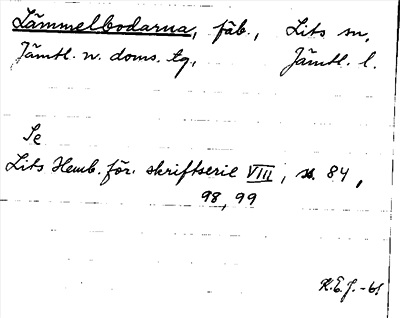 Lämmelbodarna, fäb., Lits sn,
Jämtl. n. doms. tg, Jämtl. l.
Se
Lits Hemb. för. skriftserie VIII, s. 84,
98, 99
K.E.J. -61